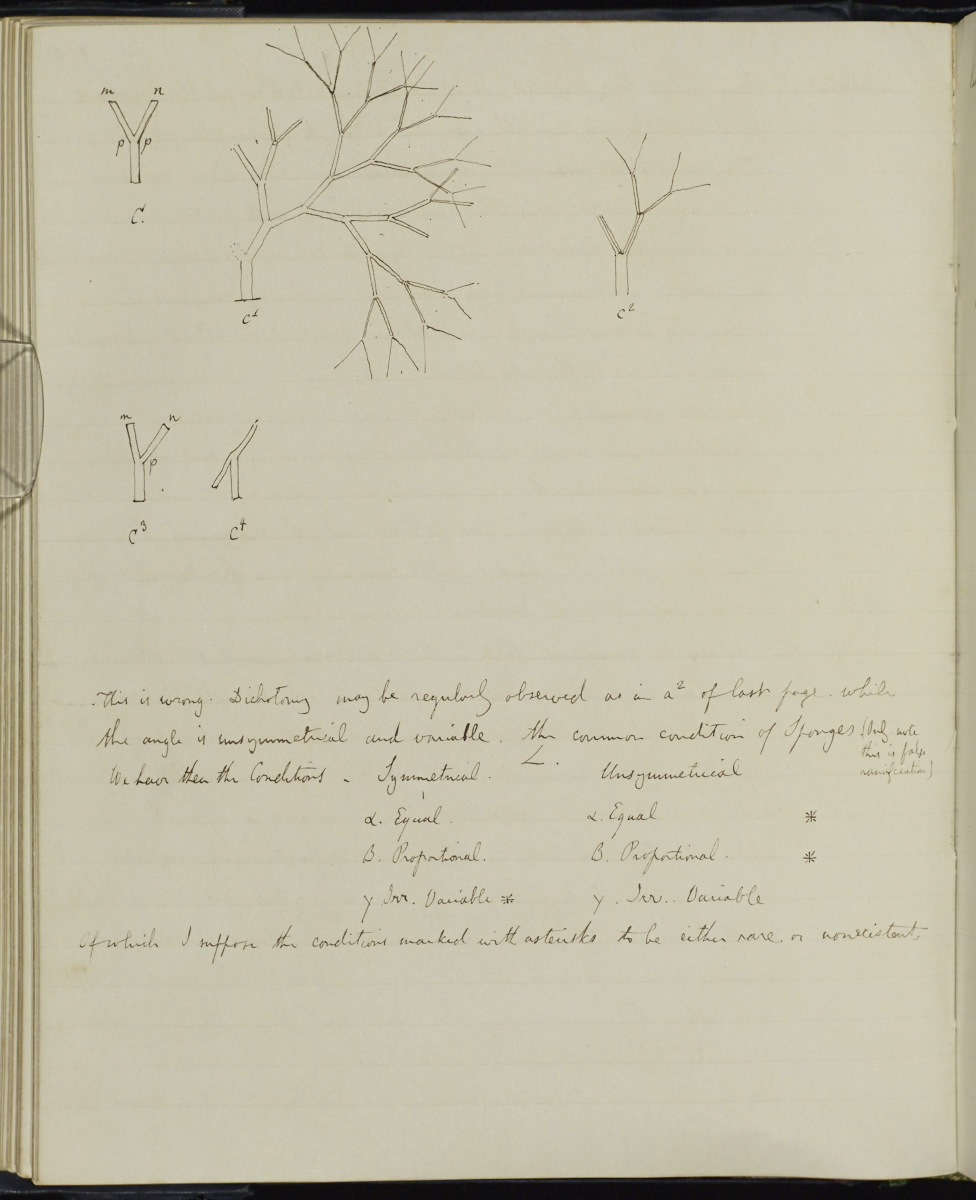 m n
p p
C.
C¹
C²
m n
p
C³ C⁴
This is wrong. Dichotomy may be regularly observed as in a² of last page. while
the angle is unsymmetrical and variable. the common condition of Sponges (Only note
this is false
ramification)
We have then the Conditions - Symmetrical. Unsymmetrical
α. Equal. α. Equal *
B. Proportional. B. Proportional. *
γ Irr. Variable * γ. Irr.. Variable
Of which I suppose the conditions marked with asterisks to be either rare. or nonexistent.